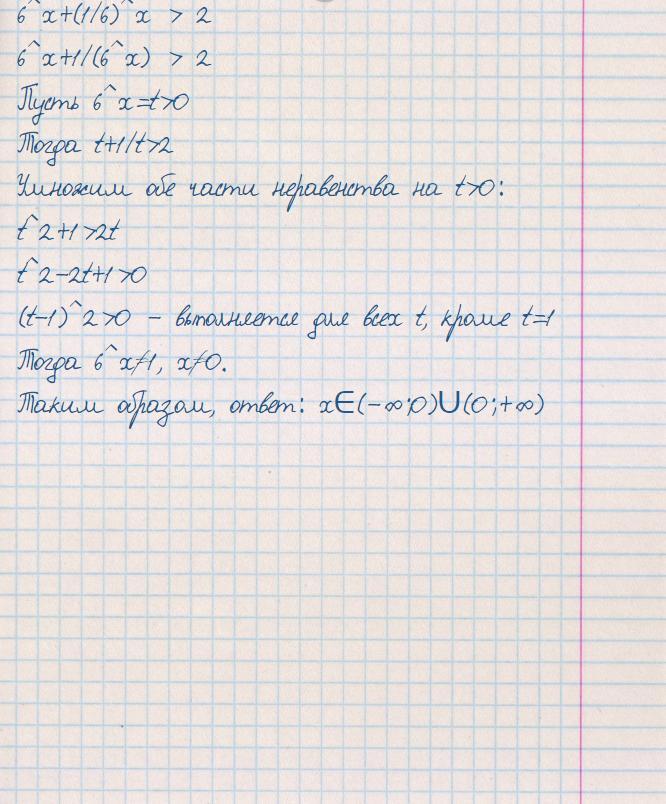 6^x+(1/6)^x > 2
6^x+1/(6^x) > 2
Пусть 6^x=t>0
Тогда t+1/t>2
Умножим обе части неравенства на t>0:
t^2+1>2t
t^2-2t+1>0
(t-1)^2>0 - выполняется для всех t, кроме t=1
Тогда 6^x≠1, x≠0.
Таким образом, ответ: x∈(-∞;0)∪(0;+∞)